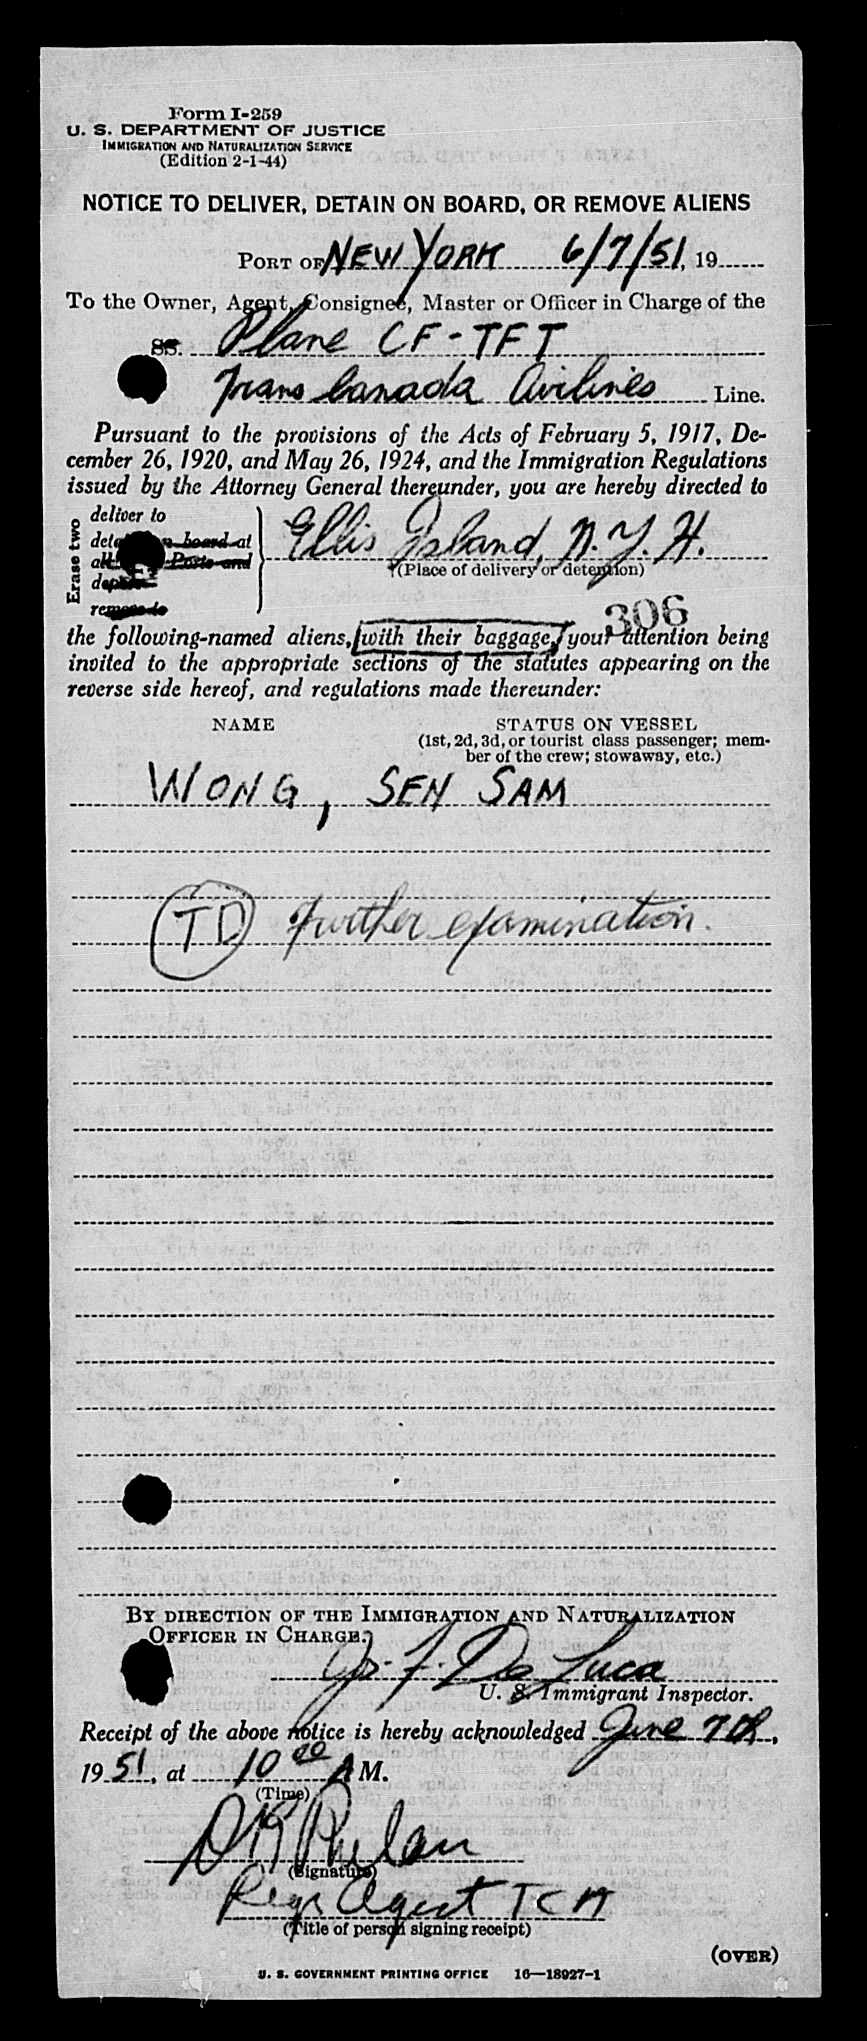 Form I-259
U. S. DEPARTMENT OF JUSTICE
IMMIGRATION AND NATURALIZATION SERVICE
(Edition 2-1-44)
NOTICE TO DELIVER, DETAIN ON BOARD, OR REMOVE ALIENS
PORT OF NEW YORK 6/7/51, 19
To the Owner, Agent, Consignee, Master or Officer in Charge of the
SS. Plane CF-TFT
Trans Canada Airlines Line.
Pursuant to the provisions of the Acts of February 5, 1917, De-
cember 26, 1920, and May 26, 1924, and the Immigration Regulations
issued by the Attorney General thereunder, you are hereby directed to
Erase two
deliver to
on board at
Ports and
remove to
Ellis Island, N.Y.H.
(Place of delivery or detention)
306
the following-named aliens, with their baggage, your attention being
invited to the appropriate sections of the statutes appearing on the
reverse side hereof, and regulations made thereunder:
NAME STATUS ON VESSEL
(1st, 2d, 3d, or tourist class passenger; mem-
ber of the crew; stowaway, etc.)
WONG, SEN SAM
TD further examination.
BY DIRECTION OF THE IMMIGRATION AND NATURALIZATION
OFFICER IN CHARGE.
De Luca
U. S. Immigrant Inspector.
Receipt of the above notice is hereby acknowledged June 7th,
19 51, at 10 00 A M.
(Time)
Phelan
(Signature)
Agent TCA
(Title of person signing receipt)
(OVER)
U. S. GOVERNMENT PRINTING OFFICE 16—18927-1